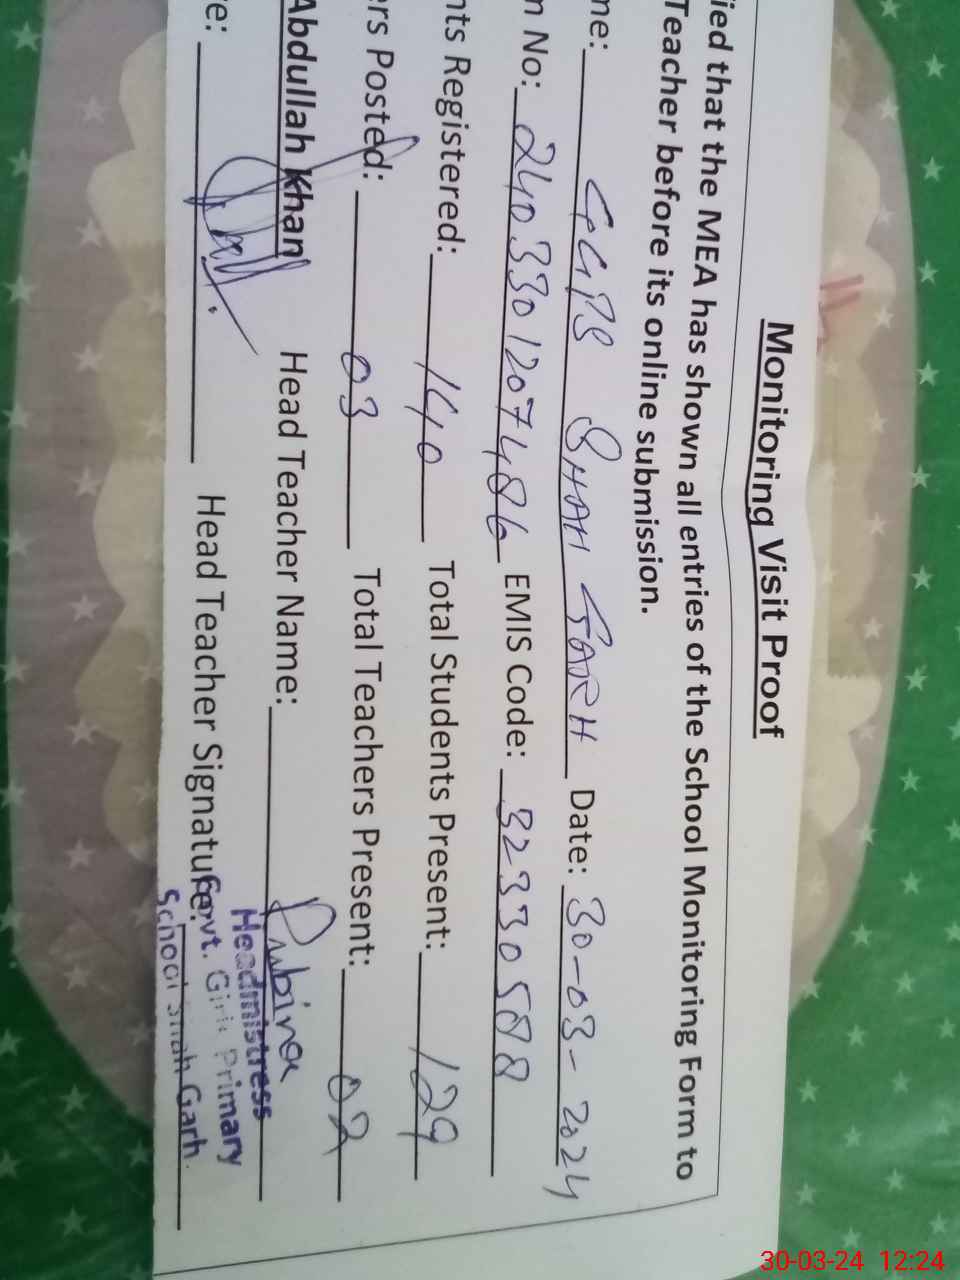 Monitoring Visit Proof
ied that the MEA has shown all entries of the School Monitoring Form to
Teacher before its online submission.
me: GGPS SHAH GARH Date: 30-03-2024
n No: 2403301207486 EMIS Code: 32330588
nts Registered: 140 Total Students Present: 129
ers Posted: 03 Total Teachers Present: 02
Abdullah khan Head Teacher Name: Rubina
re: Head Teacher Signature:
Headmistress
Govt. Girls Primary
School Shah Garh.
30-03-24 12:24